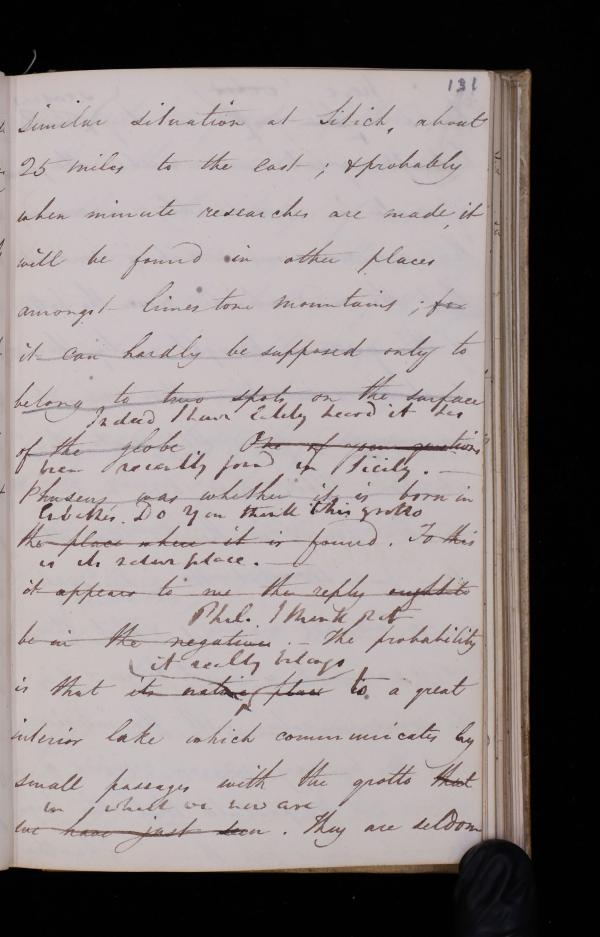 131
similar situation at Sitich, about
25 miles to the east ; & probably
when minute researches are made, it
will be found in other places
amongst limestone mountains ; for
it can hardly be supposed only to
belong to two spots on the surface
Indeed I have lately heard it has
of the globe One of your questions
been recently found in Sicily. —
was whether it is born in
Do you think this grotto
the place where it is found. To this
is its native place. —
it appears to me the reply ought to
Phil. I think not
be in the negative. — The probability
it really belongs
is that its native place to a great
interior lake which communicates by
small passages with the grotto that
in which we now are
we have just seen. They are seldom